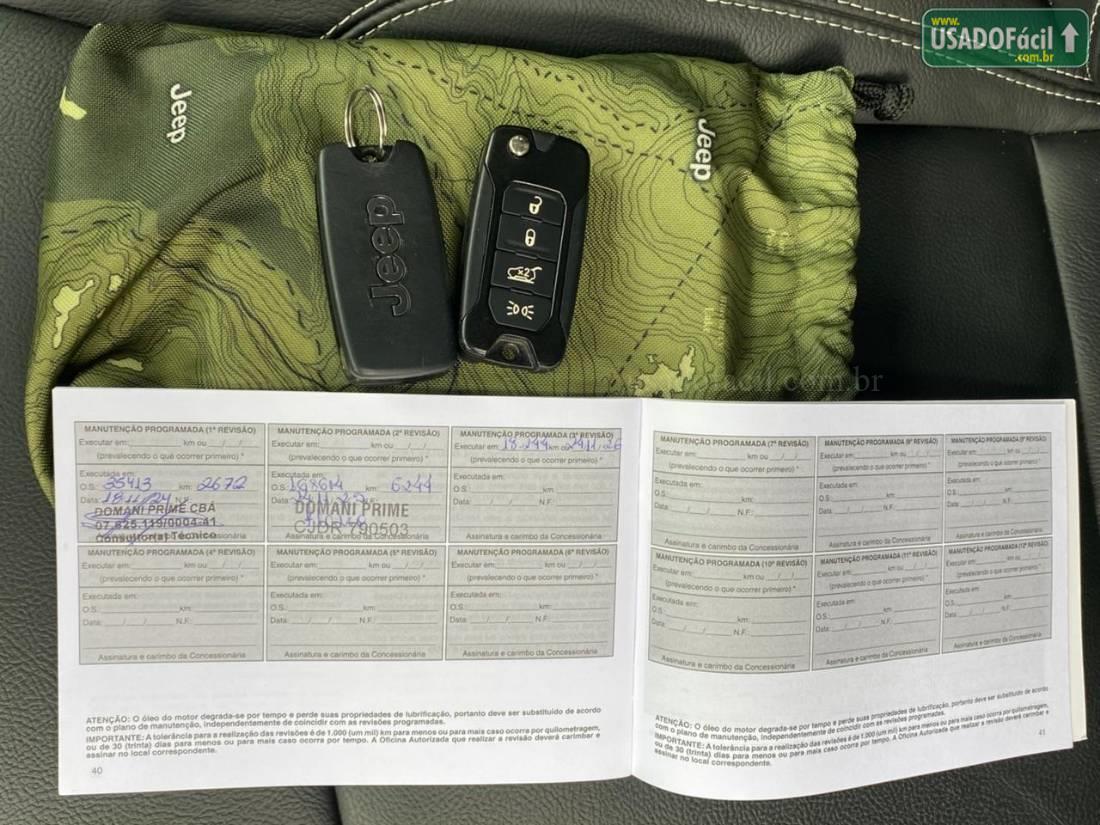 www.
USADOFácil
.com.br
Jeep
Jeep
Jeep
x2
MANUTENÇÃO PROGRAMADA (1ª REVISÃO)
Executar em: km ou / /
(prevalecendo o que ocorrer primeiro) *
Executada em:
O.S.: 35413 km: 2672
Data: 18/11/24 N.F.:
DOMANI PRIME CBÁ
07.825.119/0004-41
Consultoria Técnico
MANUTENÇÃO PROGRAMADA (2ª REVISÃO)
Executar em: km ou / /
(prevalecendo o que ocorrer primeiro) *
Executada em:
O.S. km: 6244
DOMANI PRIME
CJDR 790503
Assinatura e carimbo da Concessionária
MANUTENÇÃO PROGRAMADA (3ª REVISÃO)
Executar em: km ou
(prevalecendo o que ocorrer primeiro) *
Executada em:
O.S.: km:
Data: / / N.F.:
Assinatura e carimbo da Concessionária
MANUTENÇÃO PROGRAMADA (4ª REVISÃO)
Executar em: km ou / /
(prevalecendo o que ocorrer primeiro) *
Executada em:
O.S.: km:
Data: / / N.F.:
Assinatura e carimbo da Concessionária
MANUTENÇÃO PROGRAMADA (5ª REVISÃO)
Executar em: km ou / /
(prevalecendo o que ocorrer primeiro) *
Executada em:
O.S.: km:
Data: / / N.F.:
Assinatura e carimbo da Concessionária
MANUTENÇÃO PROGRAMADA (6ª REVISÃO)
Executar em: km ou / /
(prevalecendo o que ocorrer primeiro) *
Executada em:
O.S.: km:
Data: / / N.F.:
Assinatura e carimbo da Concessionária
ATENÇÃO: O óleo do motor degrada-se por tempo e perde suas propriedades de lubrificação, portanto deve ser substituído de acordo
com o plano de manutenção, independentemente de coincidir com as revisões programadas.
IMPORTANTE: A tolerância para a realização das revisões é de 1.000 (um mil) km para menos ou para mais caso ocorra por quilometragem,
ou de 30 (trinta) dias para menos ou para mais caso ocorra por tempo. A Oficina Autorizada que realizar a revisão deverá carimbar e
assinar no local correspondente.
40
MANUTENÇÃO PROGRAMADA (7ª REVISÃO)
Executar em: km ou / /
(prevalecendo o que ocorrer primeiro) *
Executada em:
O.S.: km:
Data: / / N.F.:
Assinatura e carimbo da Concessionária
MANUTENÇÃO PROGRAMADA (8ª REVISÃO)
Executar em: km ou / /
(prevalecendo o que ocorrer primeiro) *
Executada em:
O.S.: km:
Data: / / N.F.:
Assinatura e carimbo da Concessionária
MANUTENÇÃO PROGRAMADA (9ª REVISÃO)
Executar em: km ou / /
(prevalecendo o que ocorrer primeiro) *
Executada em:
O.S.: km:
Data: / / N.F.:
Assinatura e carimbo da Concessionária
MANUTENÇÃO PROGRAMADA (10ª REVISÃO)
Executar em: km ou / /
(prevalecendo o que ocorrer primeiro) *
Executada em:
O.S.: km:
Data: / / N.F.:
Assinatura e carimbo da Concessionária
MANUTENÇÃO PROGRAMADA (11ª REVISÃO)
Executar em: km ou / /
(prevalecendo o que ocorrer primeiro) *
Executada em:
O.S.: km:
Data: / / N.F.:
Assinatura e carimbo da Concessionária
MANUTENÇÃO PROGRAMADA (12ª REVISÃO)
Executar em: km ou / /
(prevalecendo o que ocorrer primeiro) *
Executada em:
O.S.: km:
Data: / / N.F.:
Assinatura e carimbo da Concessionária
ATENÇÃO: O óleo do motor degrada-se por tempo e perde suas propriedades de lubrificação, portanto deve ser substituído de acordo
com o plano de manutenção, independentemente de coincidir com as revisões programadas.
IMPORTANTE: A tolerância para a realização das revisões é de 1.000 (um mil) km para menos ou para mais caso ocorra por quilometragem,
ou de 30 (trinta) dias para menos ou para mais caso ocorra por tempo. A Oficina Autorizada que realizar a revisão deverá carimbar e
assinar no local correspondente.
41